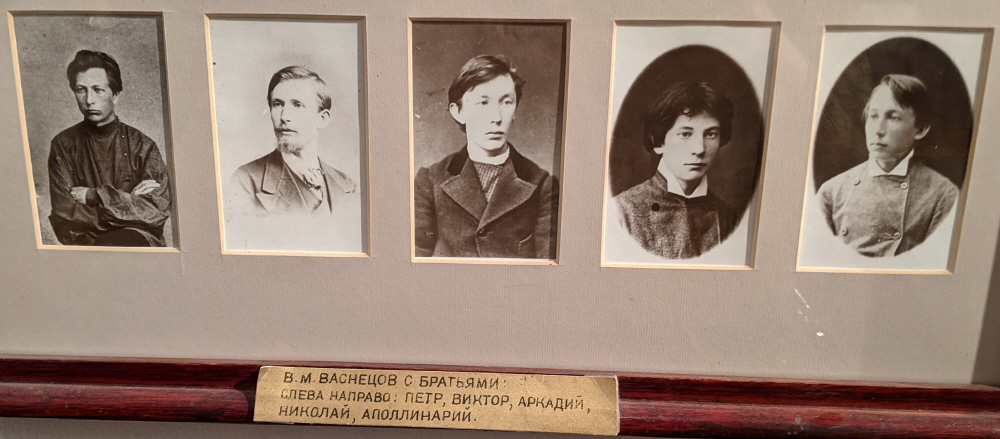 В. М. ВАСНЕЦОВ С БРАТЬЯМИ:
СЛЕВА НАПРАВО: ПЕТР, ВИКТОР, АРКАДИЙ,
НИКОЛАЙ, АПОЛЛИНАРИЙ.